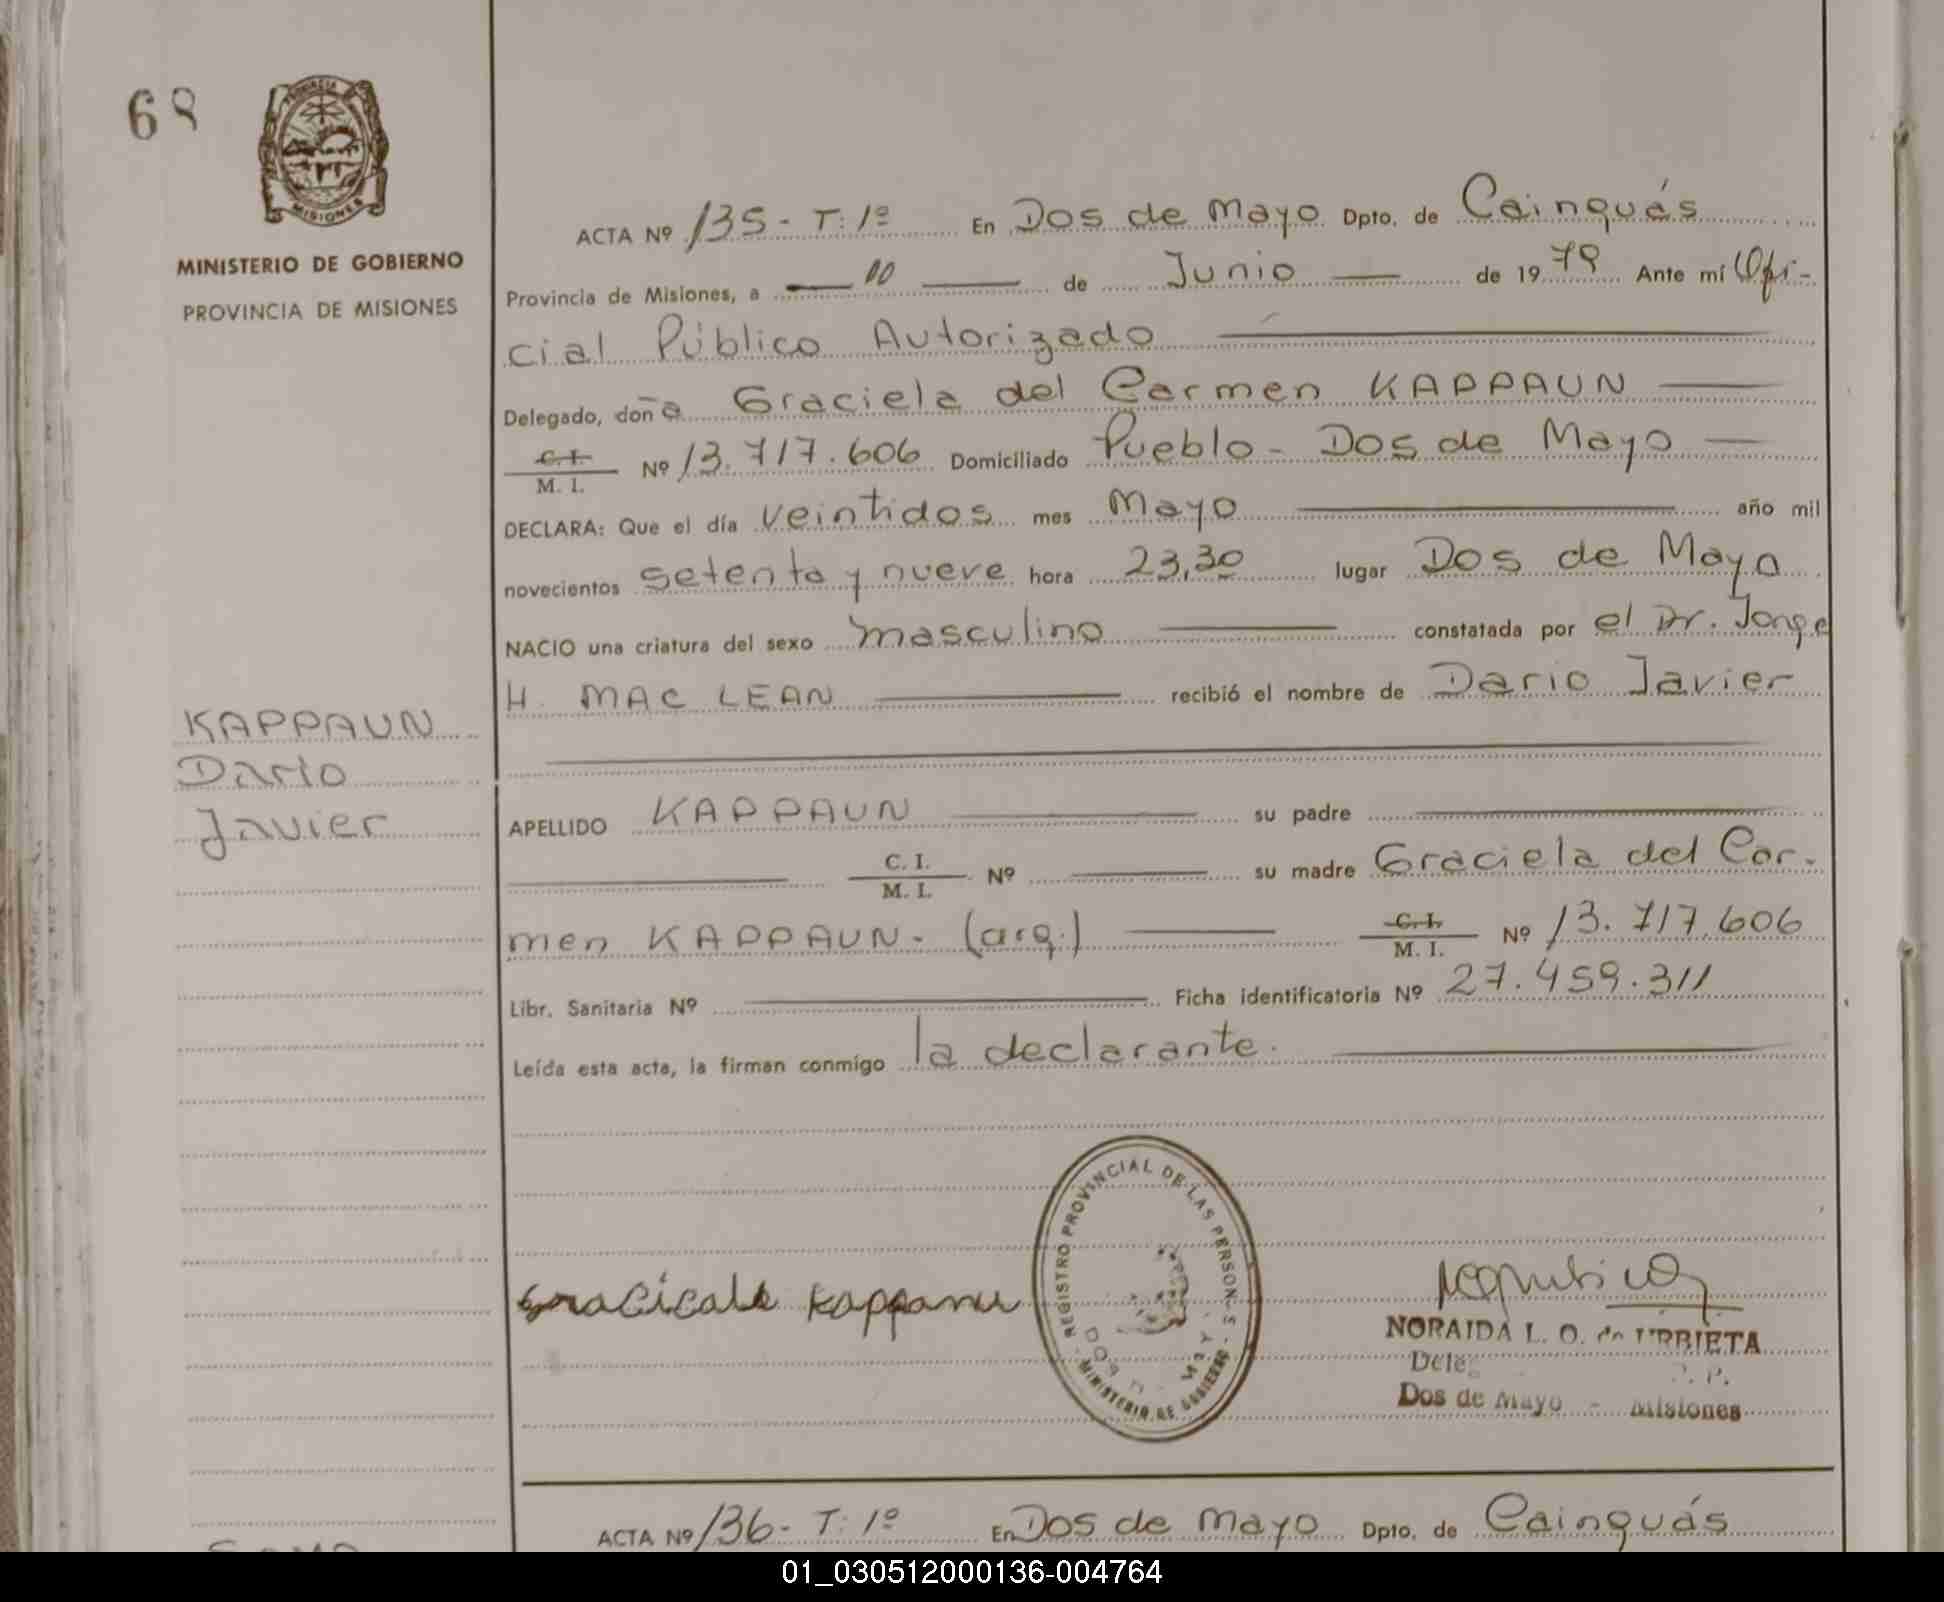 68
PROVINCIA DE
MISIONES
MINISTERIO DE GOBIERNO
PROVINCIA DE MISIONES
ACTA Nº 135 - T: 1º En Dos de Mayo Dpto. de Cainguás
Provincia de Misiones, a de Junio de 1979 Ante mí Ofi-
cial Público Autorizado
Delegado, doña Graciela del Carmen KAPPAUN
C. I.
M. I. Nº 13.717.606 Domiciliado Pueblo - Dos de Mayo
DECLARA: Que el día veintidos mes Mayo año mil
novecientos setenta y nueve hora 23,30 lugar Dos de Mayo
NACIO una criatura del sexo masculino constatada por el Dr. Jorge
H. MAC LEAN recibió el nombre de Dario Javier
KAPPAUN
Dario
Javier
APELLIDO KAPPAUN su padre
C. I.
M. I. Nº su madre Graciela del Car-
men KAPPAUN - (arg.) C. I.
M. I. Nº 13.717.606
Libr. Sanitaria Nº Ficha identificatoria Nº 27.459.311
Leída esta acta, la firman conmigo la declarante.
REGISTRO PROVINCIAL DE LAS PERSONAS
MINISTERIO DE GOBIERNO
Kappaun
NORAIDA L. O. de URBIETA
Dos de Mayo - Misiones
ACTA Nº 136 - T: 1º En Dos de Mayo Dpto. de Cainguás
01_030512000136-004764